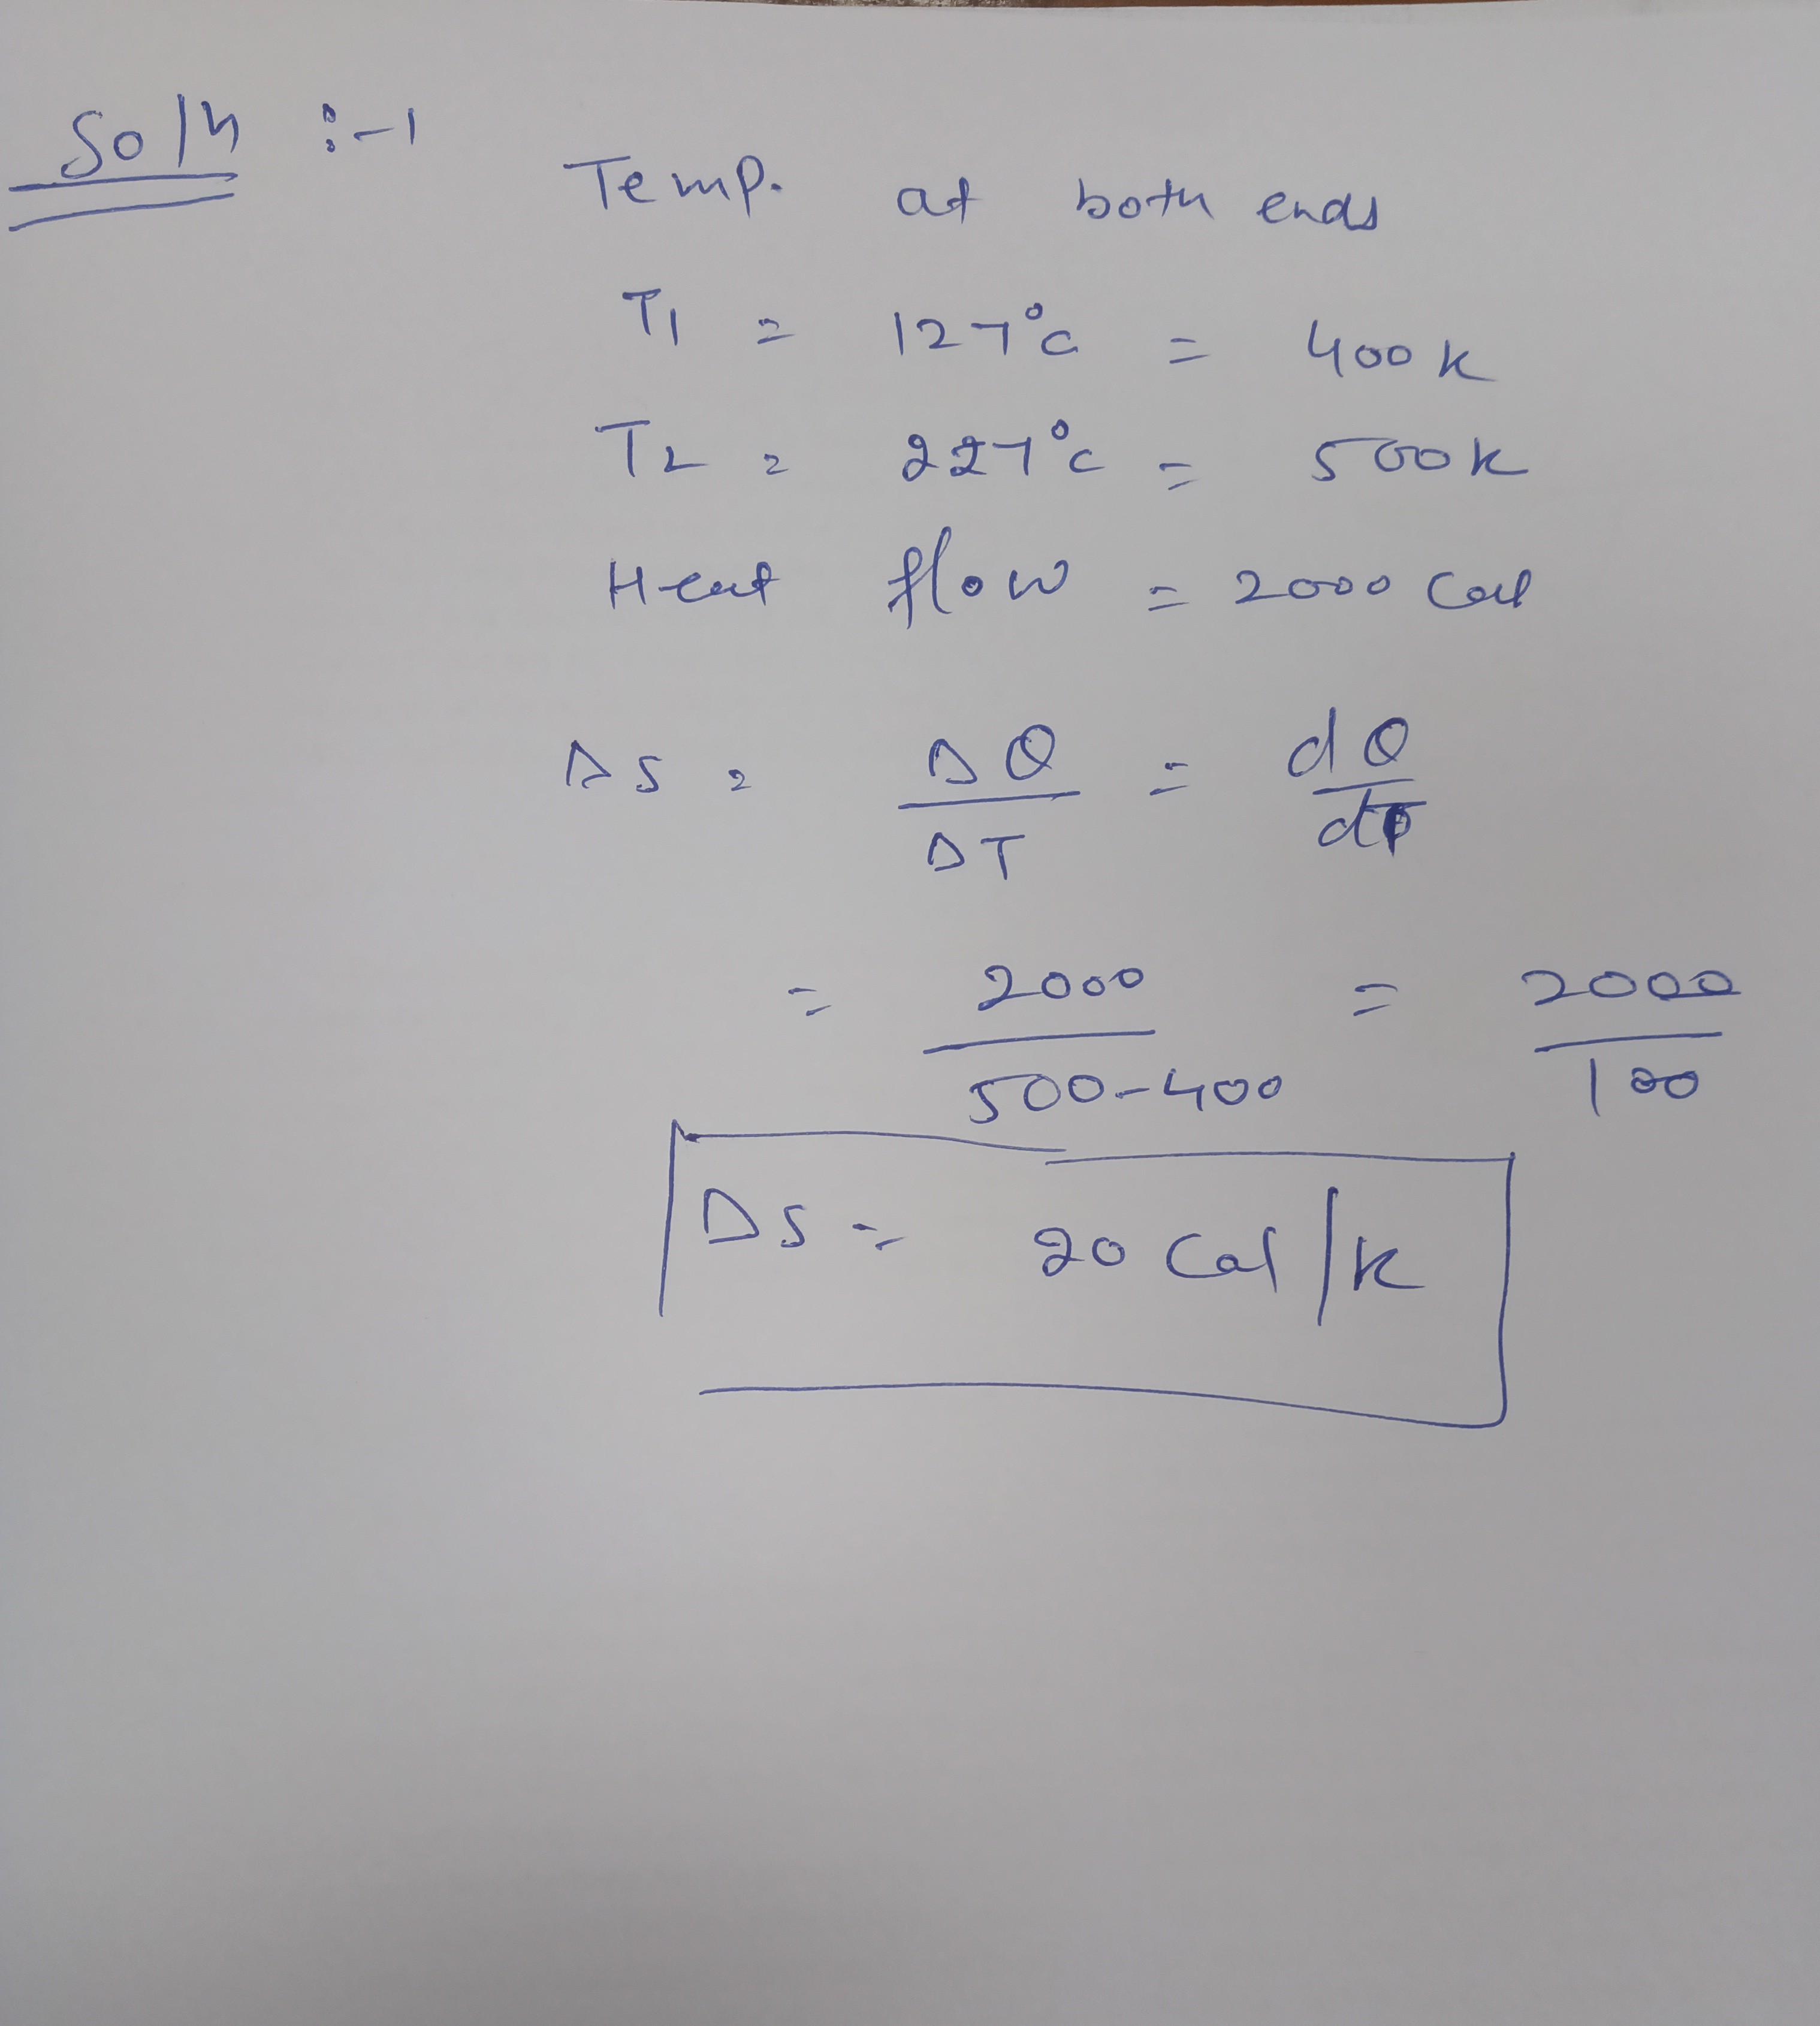 Soln :-1
Temp. at both ends
T1 = 127°C = 400K
T2 = 227°C = 500K
Heat flow = 2000 Cal
ΔS = ΔQ/ΔT = dQ/dT
= 2000/500-400 = 2000/100
ΔS = 20 Cal/K